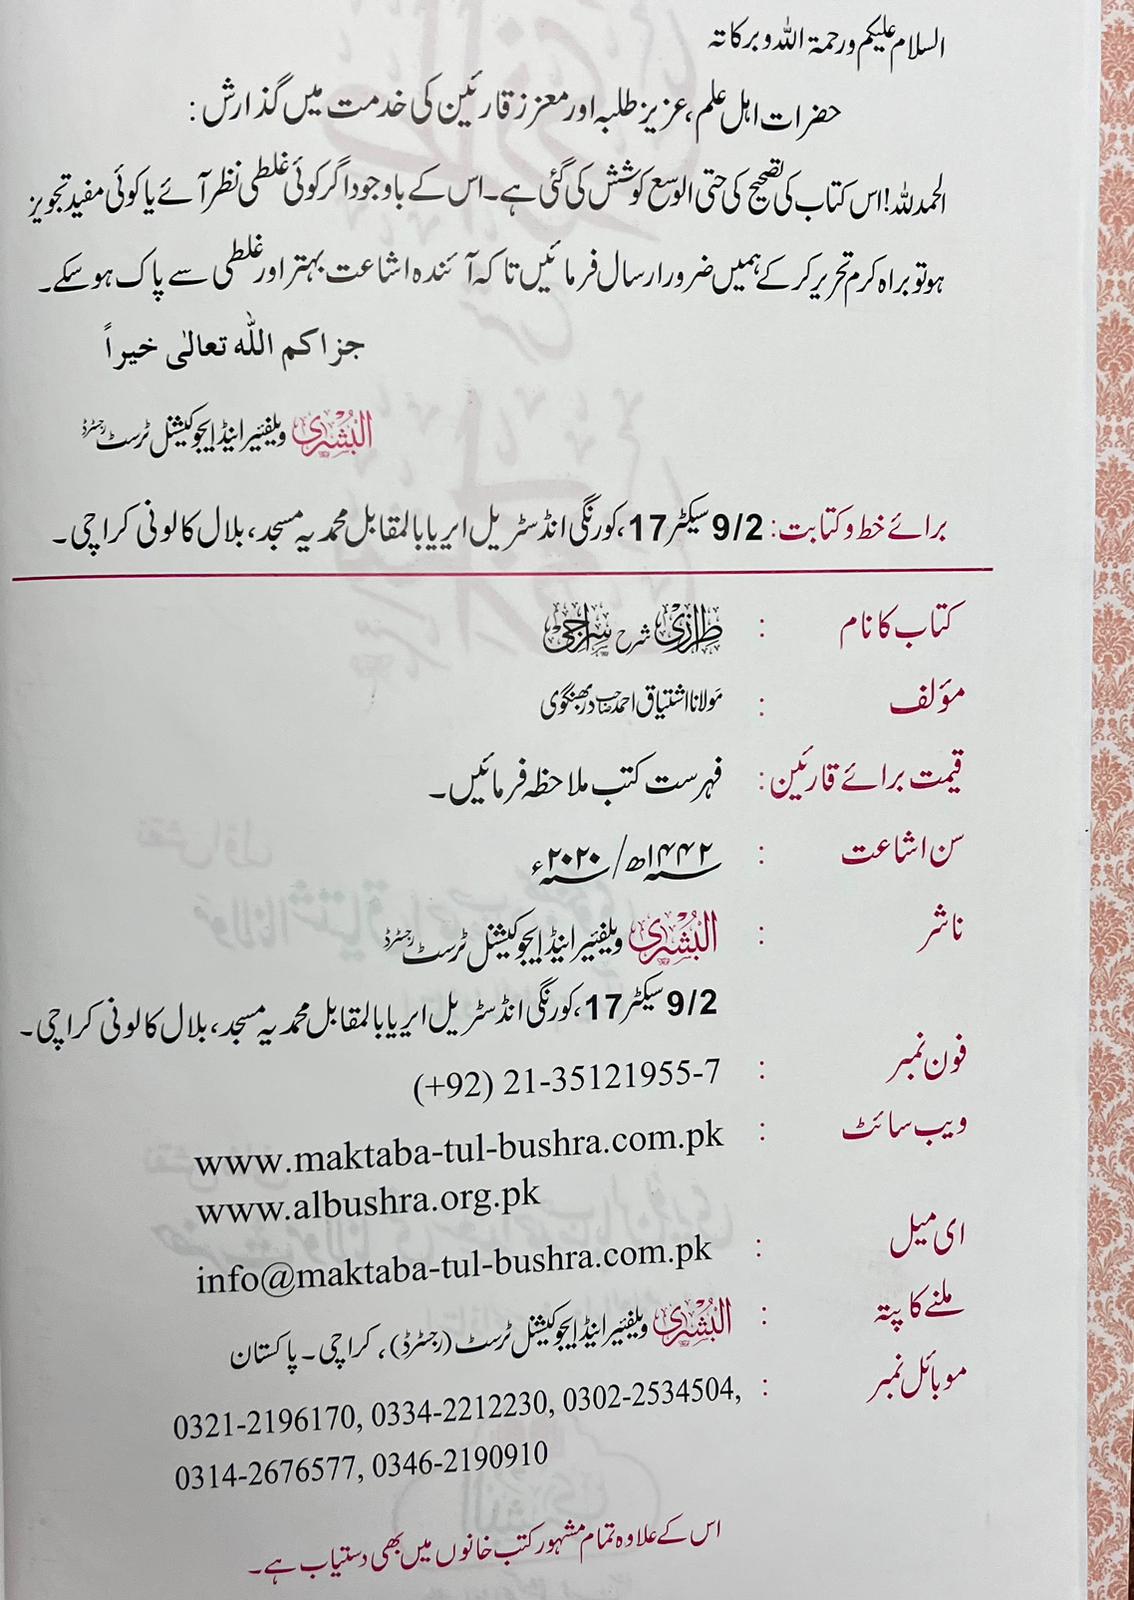 السلام علیکم ورحمۃ اللہ وبرکاتہ
حضرات اہل علم، عزیز طلبہ اور معزز قارئین کی خدمت میں گذارش:
الحمد للہ! اس کتاب کی تصحیح کی حتی الوسع کوشش کی گئی ہے۔ اس کے باوجود اگر کوئی غلطی نظر آئے یا کوئی مفید تجویز
ہو تو براہ کرم تحریر کر کے ہمیں ضرور ارسال فرمائیں تاکہ آئندہ اشاعت بہتر اور غلطی سے پاک ہو سکے۔
جزاكم الله تعالىٰ خيراً
البُشریٰ ویلفیئر اینڈ ایجوکیشنل ٹرسٹ رجسٹرڈ
برائے خط و کتابت: 9/2 سیکٹر 17، کورنگی انڈسٹریل ایریا بالمقابل محمدیہ مسجد، بلال کالونی کراچی۔
کتاب کا نام : طرازی شرح سراجی
مؤلف : مولانا اشتیاق احمد صاحب دربھنگوی
قیمت برائے قارئین: فہرست کتب ملاحظہ فرمائیں۔
سن اشاعت : ۱۴۴۲ھ/ ۲۰۲۰ء
ناشر : البُشریٰ ویلفیئر اینڈ ایجوکیشنل ٹرسٹ رجسٹرڈ
9/2 سیکٹر 17، کورنگی انڈسٹریل ایریا بالمقابل محمدیہ مسجد، بلال کالونی کراچی۔
فون نمبر : (+92) 21-35121955-7
ویب سائٹ : www.maktaba-tul-bushra.com.pk
www.albushra.org.pk
ای میل : info@maktaba-tul-bushra.com.pk
ملنے کا پتہ : البُشریٰ ویلفیئر اینڈ ایجوکیشنل ٹرسٹ (رجسٹرڈ)، کراچی۔ پاکستان
موبائل نمبر : 0321-2196170, 0334-2212230, 0302-2534504,
0314-2676577, 0346-2190910
اس کے علاوہ تمام مشہور کتب خانوں میں بھی دستیاب ہے۔